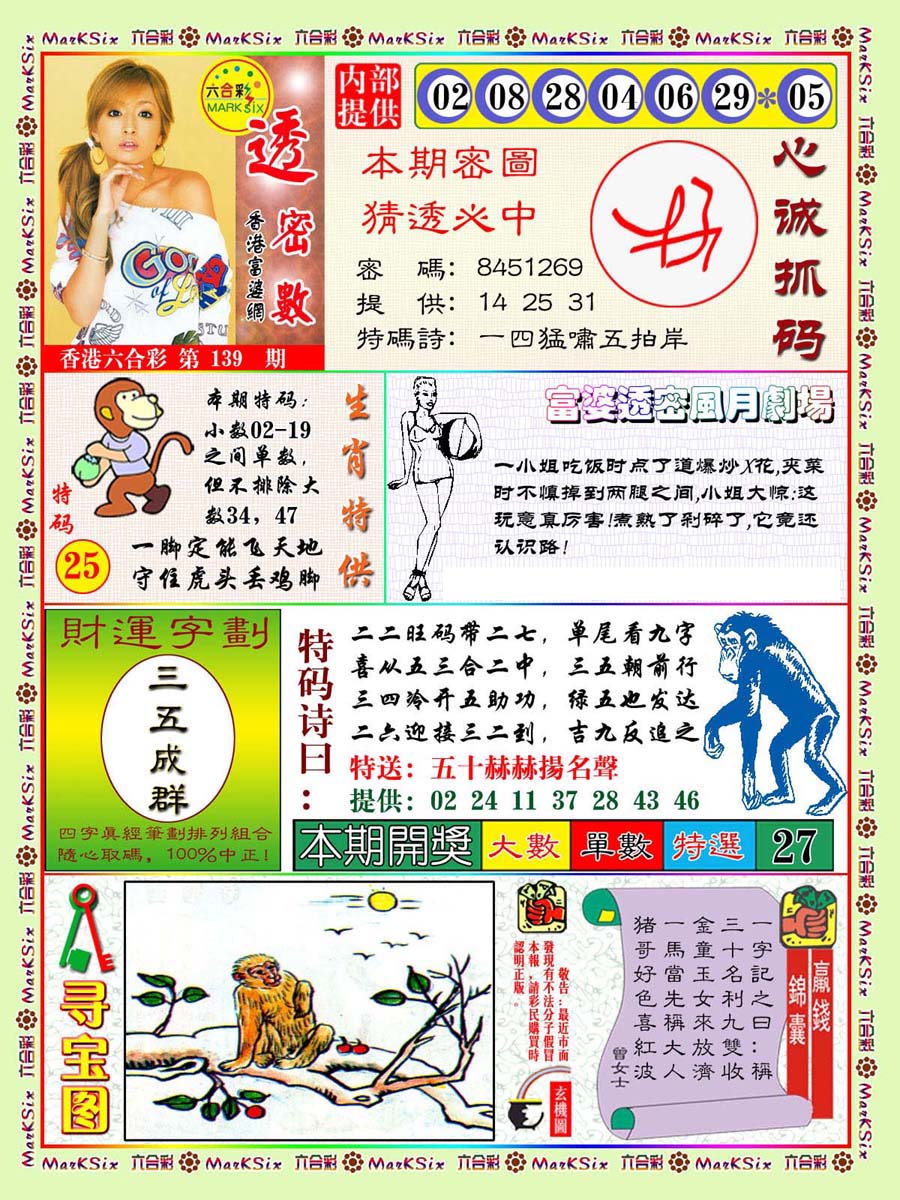 MarKSix 六合彩 MarKSix 六合彩 MarKSix 六合彩 MarKSix 六合彩 MarKSix 六合彩
六合彩
MARK SIX
透密數
香港富婆網
香港六合彩 第 139 期
内部
提供
02 08 28 04 06 29 * 05
本期密圖
猜透必中
密 碼: 8451269
提 供: 14 25 31
特碼詩: 一四猛嘯五拍岸
心诚抓码
本期特码:
小数02-19
之间单数,
但不排除大
数34, 47
一脚定能飞天地
守住虎头丢鸡脚
特码
25
生肖特供
富婆透密風月劇場
一小姐吃饭时点了道爆炒X花,夹菜
时不慎掉到两腿之间,小姐大惊:这
玩意真厉害!煮熟了剁碎了,它竟还
认识路!
財運字劃
三五成群
四字真經筆劃排列組合
隨心取碼, 100%中正!
特码诗曰:
二二旺码带二七, 单尾看九字
喜从五三合二中, 三五朝前行
三四冷开五助功, 绿五也发达
二六迎接三二到, 吉九反追之
特送: 五十赫赫揚名聲
提供: 02 24 11 37 28 43 46
本期開獎 大數 單數 特選 27
寻宝图
敬告:最近市面
發現有不法分子假冒
本報,請彩民購買時
認明正版。
玄機圖
贏錢
錦囊
一字記之曰:稱
三十名利九雙收
金童玉女來放濟
一馬當先稱大人
猪哥好色喜紅波
曾女士
MarKSix 六合彩 MarKSix 六合彩 MarKSix 六合彩 MarKSix 六合彩 MarKSix 六合彩